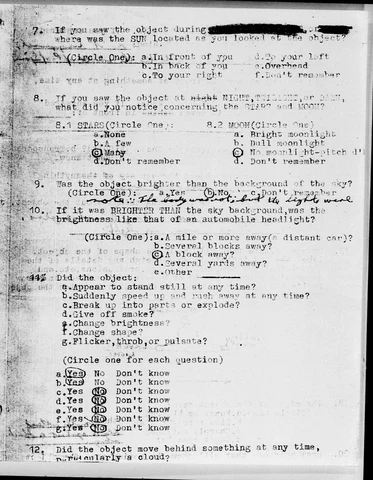 7. If you saw the object during
where was the SUN located as you looked at the object?
(Circle One): a.In front of you d.To your left
b.In back of you e.Overhead
c.To your right f.Don't remember
8. If you saw the object at night NIGHT,TWILIGHT,or DAWN,
what did you notice concerning the STARS and MOON?
8.1 STARS(Circle One): 8.2 MOON(Circle One)
a.None a. Bright moonlight
b.A few b. Dull moonlight
c.Many c. No moonlight-pitch d'
d.Don't remember d. Don't remember
9. Was the object brighter than the background of the sky?
(Circle One): a.Yes b.No c.Don't remember
note: The body was not, but the lights were
10. If it was BRIGHTER THAN the sky background,was the
brightness like that of an automobile headlight?
(Circle One):a.A mile or more away(a distant car)?
b.Several blocks away?
c.A block away?
d.Several yards away?
e.Other
11. Did the object:
a.Appear to stand still at any time?
b.Suddenly speed up and rush away at any time?
c.Break up into parts or explode?
d.Give off smoke?
e.Change brightness?
f.Change shape?
g.Flicker,throb,or pulsate?
(Circle one for each question)
a.Yes No Don't know
b.Yes No Don't know
c.Yes No Don't know
d.Yes No Don't know
e.Yes No Don't know
f.Yes No Don't know
g.Yes No Don't know
12. Did the object move behind something at any time,
particularly a cloud?